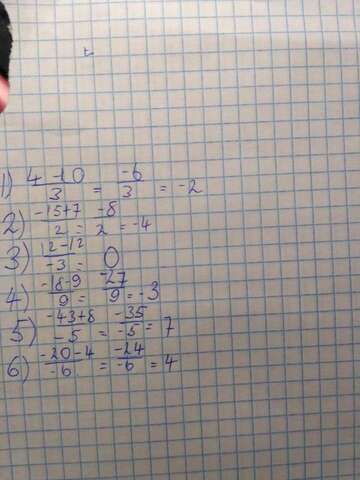 1) 4-10/3 = -6/3 = -2
2) -15+7/2 = -8/2 = -4
3) 12-12/-3 = 0
4) -18-9/9 = -27/9 = -3
5) -43+8/-5 = -35/-5 = 7
6) -20-4/-6 = -24/-6 = 4